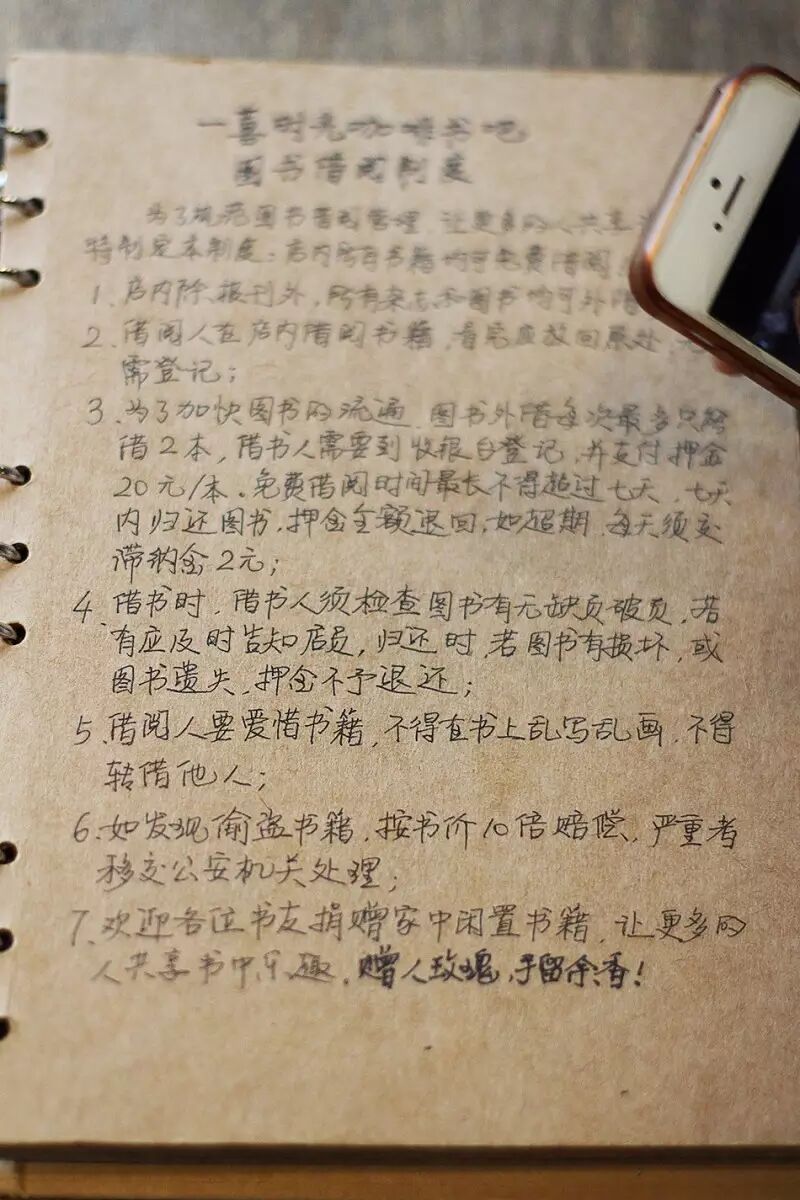 一喜时光咖啡书吧
图书借阅制度
为了规范图书借阅管理，让更多的人共享
特制定本制度：店内所有书籍均可免费借阅
1、店内除报刊外，所有杂志和图书均可外借
2、借阅人在店内借阅书籍，看完应放回原处，
需登记；
3、为了加快图书的流通，图书外借每次最多只能
借2本，借书人需要到收银台登记，并支付押金
20元/本。免费借阅时间最长不得超过七天，七天
内归还图书，押金全额退回，如超期，每天须交
滞纳金2元；
4、借书时，借书人须检查图书有无缺页破页，若
有应及时告知店员，归还时，若图书有损坏，或
图书遗失，押金不予退还；
5、借阅人要爱惜书籍，不得在书上乱写乱画，不得
转借他人；
6、如发现偷盗书籍，按书价10倍赔偿，严重者
移交公安机关处理；
7、欢迎各位书友捐赠家中闲置书籍，让更多的
人共享书中乐趣，赠人玫瑰，手留余香！